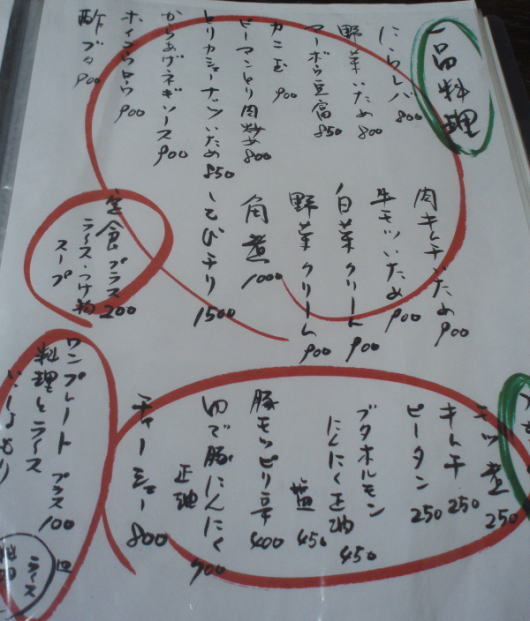 一品料理
にらレバ 800
野菜いため 800
マーボウ豆腐 850
カニ玉 900
ピーマンとり肉炒め 800
とりカシューナッツいため 850
からあげネギソース 900
ホイコウロウ 900
酢ブタ 900
肉キムチいため 900
牛モツいため 900
白菜クリーム 900
野菜クリーム 900
角煮 1000
えびチリ 1500
定食プラス 200
ライス・つけ物
スープ
キムチ 250
ピータン 250
ブタホルモン
にんにく正油 450
塩 450
豚モツピリ辛 400
ゆで豚にんにく
正油 900
チャーシュー 800
ワンプレート プラス 100
料理とライス
ライス